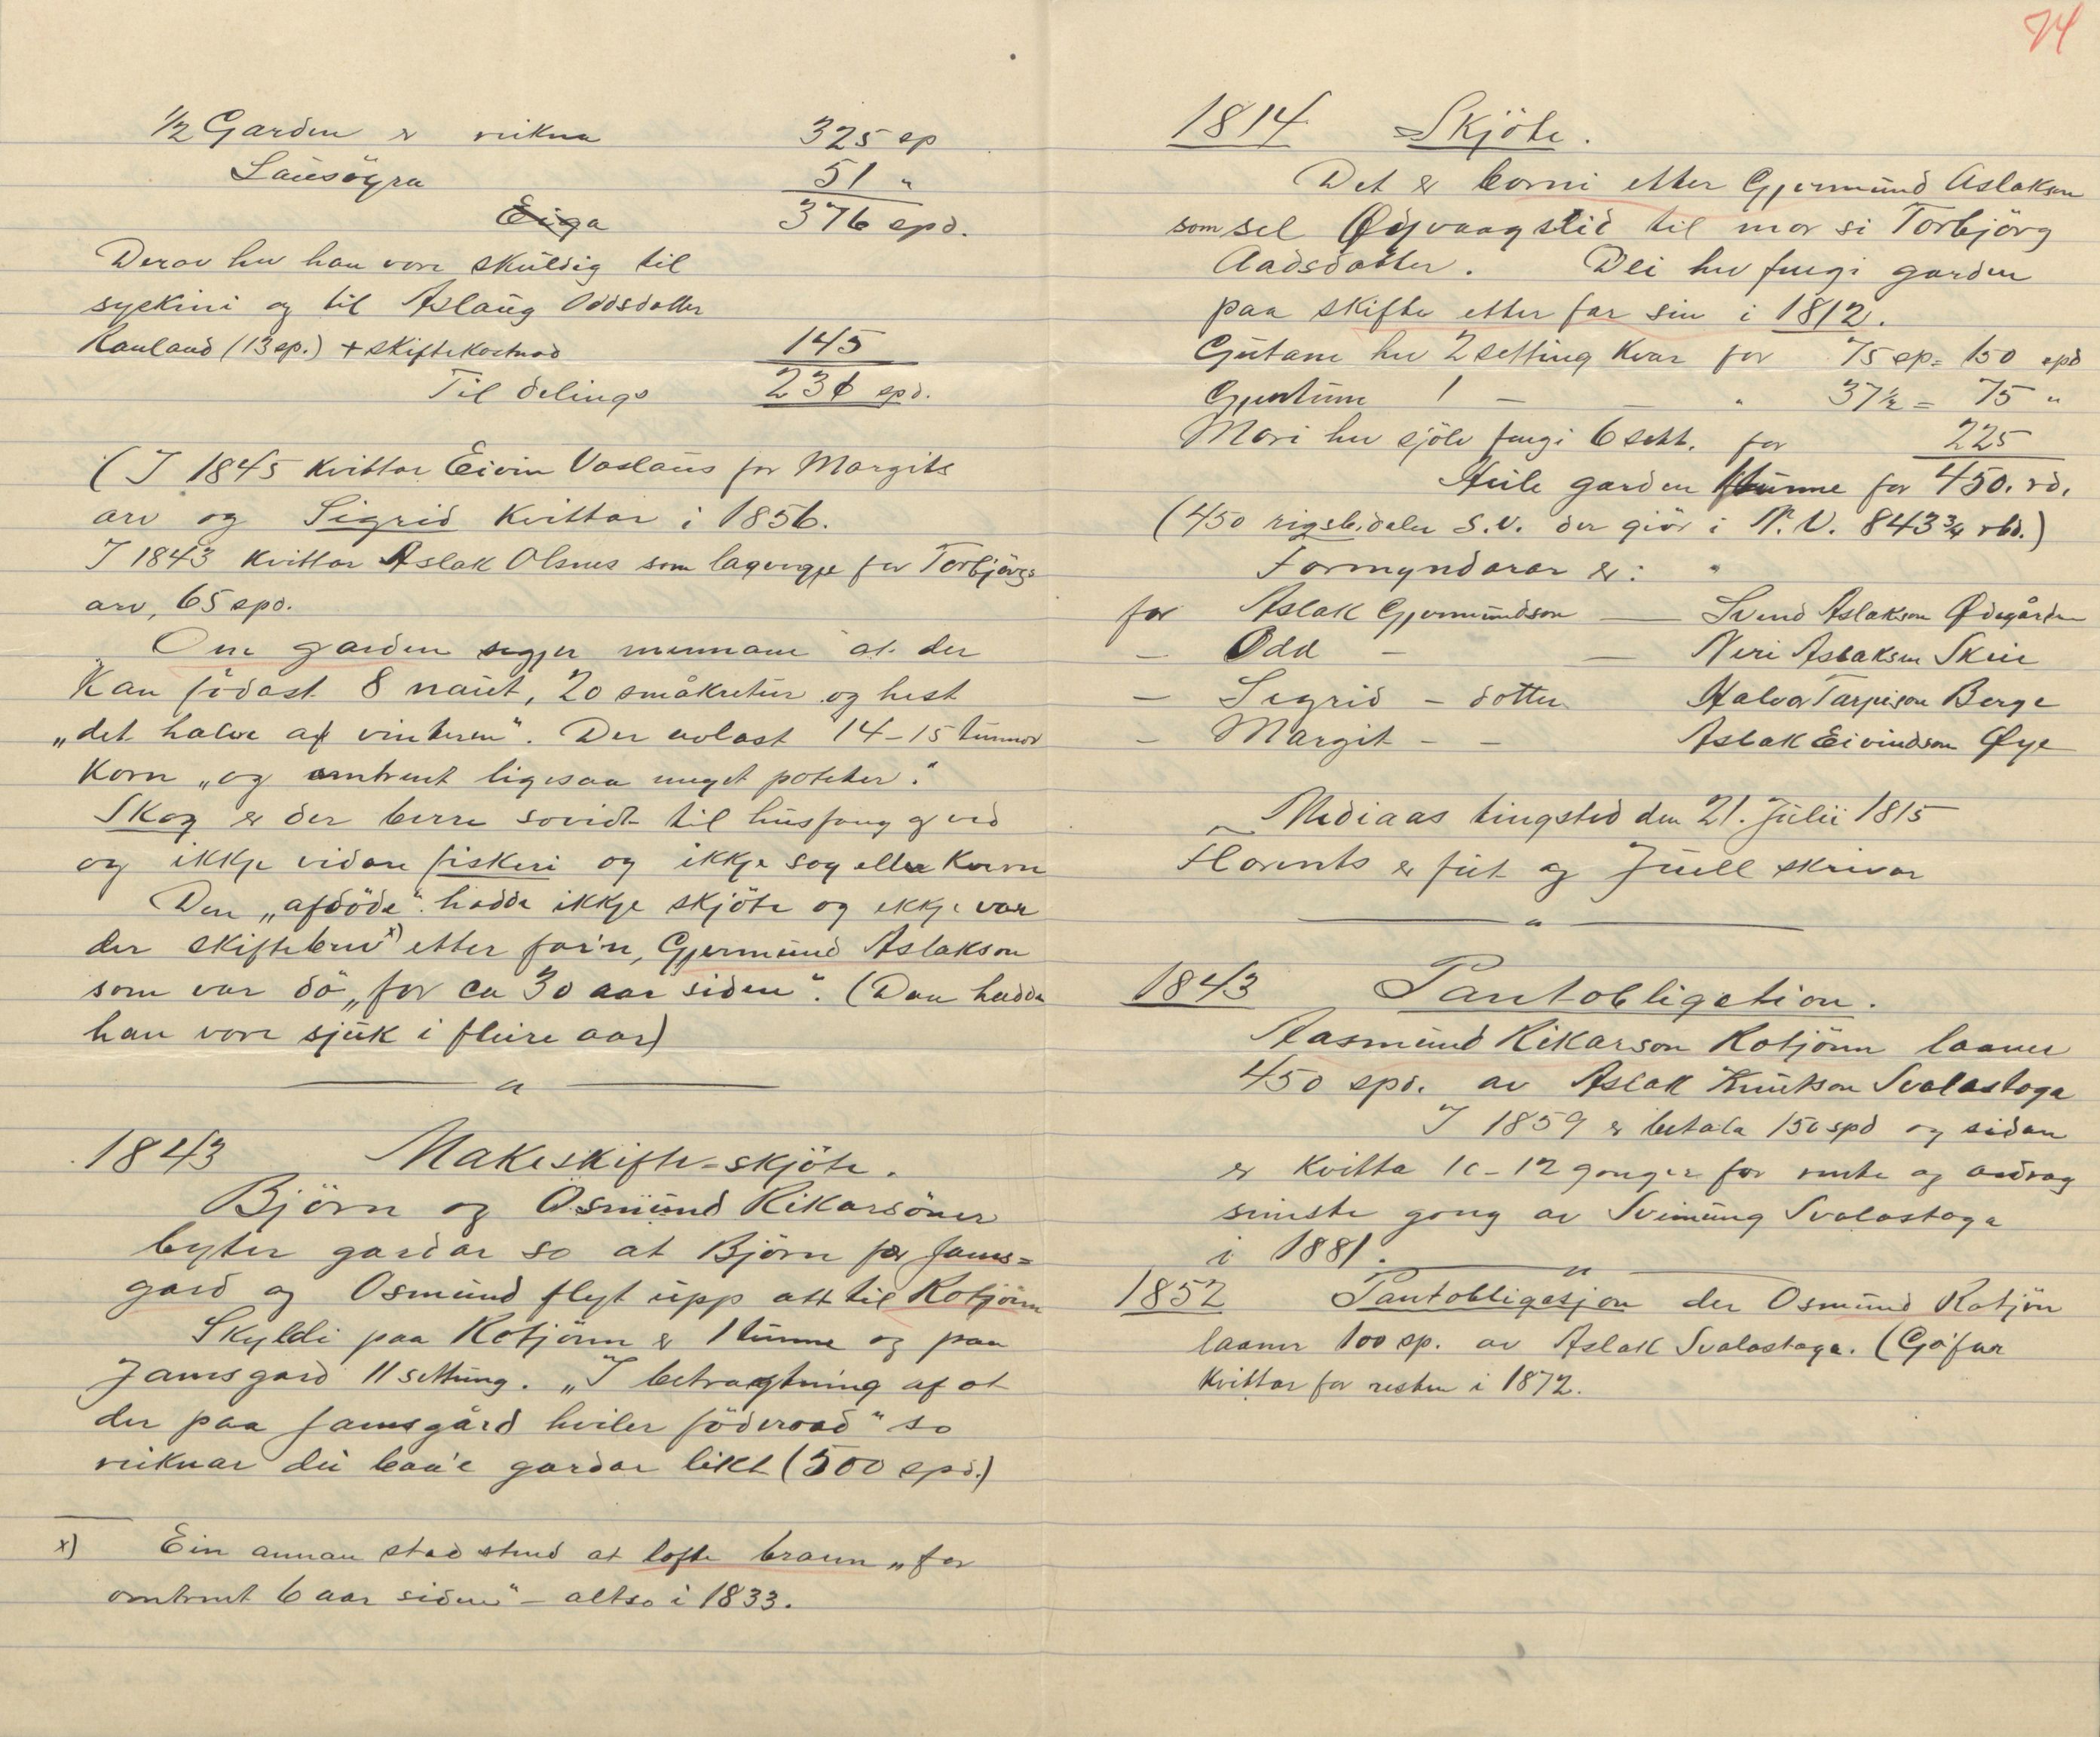 ½ Garden er reikna 325 sp
Lausöyra 51 "
Eiga 376 spd.
Derav hev han vore skuldig til
syskini og til Aslaug Oddsdotter
Rauland (13 sp.) + skiftekostnad 145
Til delings 231 spd.
(I 1845 kvittar Eivin Vaslaus for Margits
arv og Sigrid kvittar i 1856.
I 1843 kvittar Aslak Olsnes som lagverge for Torbjörgs
arv, 65 spd.
Om garden segjer mennane at der
kan födast 8 naut, 20 småkretur og hest
„det halve af vinteren". Der avlast 14-15 tunnor
korn „og omtrent ligesaa meget poteter."
Skog er der berre sovidt til husfang og ved
og ikkje vidare fiskeri og ikkje sag eller kvern
Den „afdöde" hadde ikkje skjöte og ikkje var
der skiftebrev x) etter far'n, Gjermund Aslakson
som var dö „for ca 30 aar siden". (Dan hadde
han vore sjuk i fleire aar)
"
1843 Makeskifte-skjöte.
Björn og Osmund Rikarsöner
byter gardar so at Björn fær Jams=
gard og Osmund flyt upp att til Kotjönn
Skyldi paa Kotjönn er 1 tunne og paa
Jamsgard 11 settung. „I betragtning af at
der paa Jamsgård hviler föderaad" so
reiknar dei baa'e gardar likt (500 spd.)
x) Ein annan stad stend at lofte brann „for
omtrent 6 aar siden" – altso i 1833.
74
1814 Skjöte.
Det er borni etter Gjermund Aslakson
som sel Öyvaagslid til mor si Torbjörg
Aadsdotter. Dei hev fengi garden
paa skifte etter far sin i 1812.
Gutane hev 2 setting kvar for 75 sp = 150 spd
Gjentune 1 – – " 37½ = 75 "
Mori hev sjölv fengi 6 sett. for 225
Heile garden 1 tunne for 450. rd.
(450 rigsb.daler S.V. der giör i N.V. 843¾ rbd.)
Formyndarar er:
for Aslak Gjermundson — Svend Aslakson Ödegården
– Odd – — Neri Aslaksen Skeie
– Sigrid – dotter Halvor Tarjeison Berge
– Margit – – Aslak Eivindson Øye
Mediaas tingsted den 21. Julii 1815
Florents er fut og Juell skrivar
"
1843 Pantobligation.
Aasmund Rikarson Kotjönn laaner
450 spd. av Aslak Knutson Svalastoga
I 1859 er betala 150 spd og sidan
er kvitta 10-12 gonger for rente og avdrag
sinste gong av Sveinung Svalastoga
i 1881.
"
1852 Pantobligasjon der Osmund Kotjön
laaner 100 sp. av Aslak Svalastoga. (Go'far
kvittar for resten i 1872.